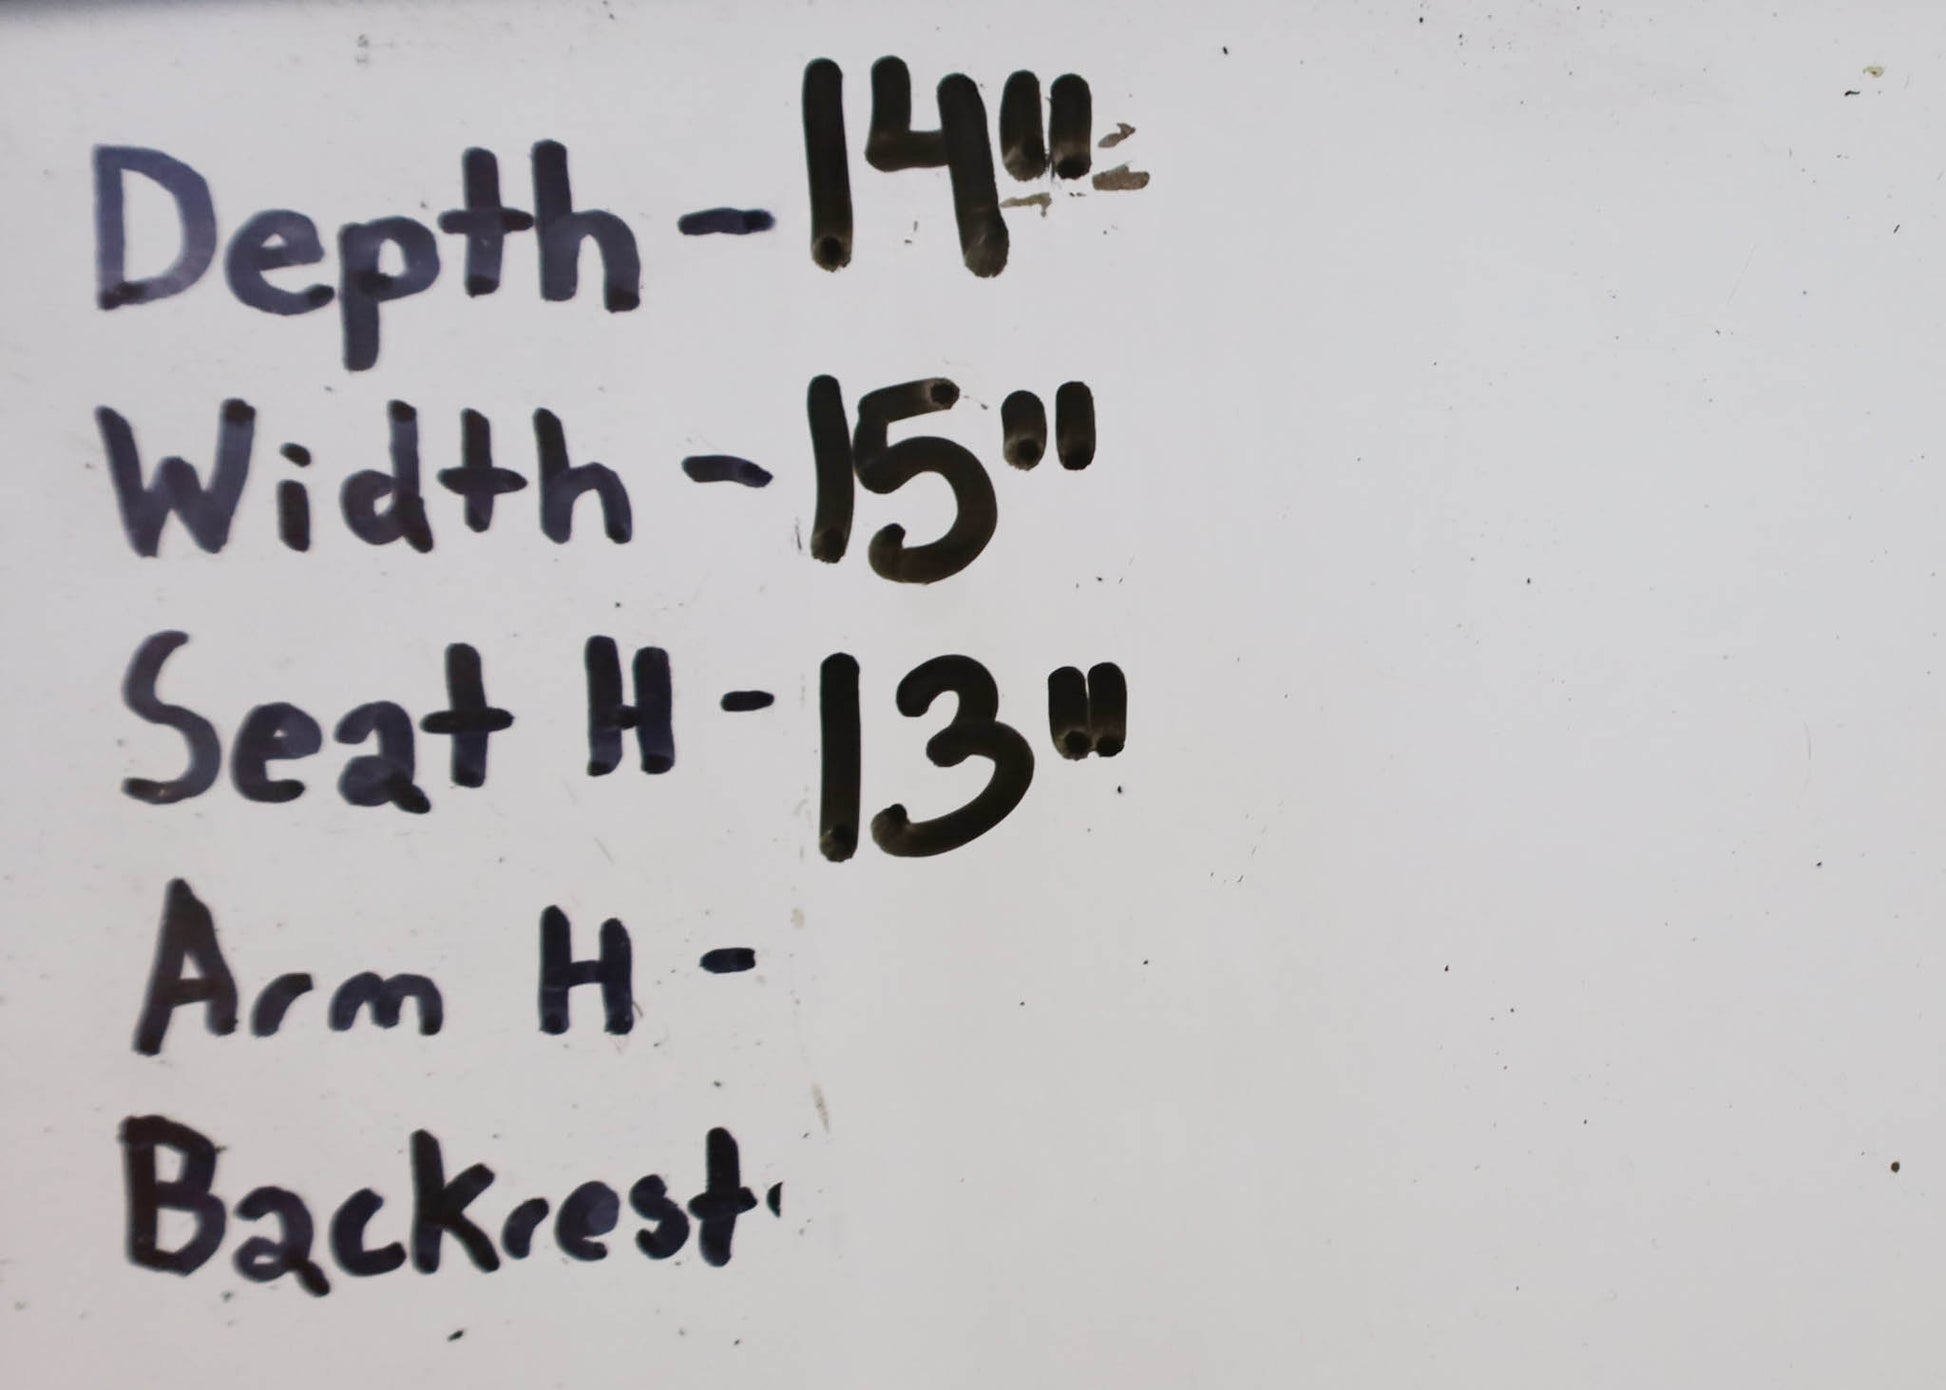 Depth - 14"
Width - 15"
Seat H - 13"
Arm H -
Backrest -